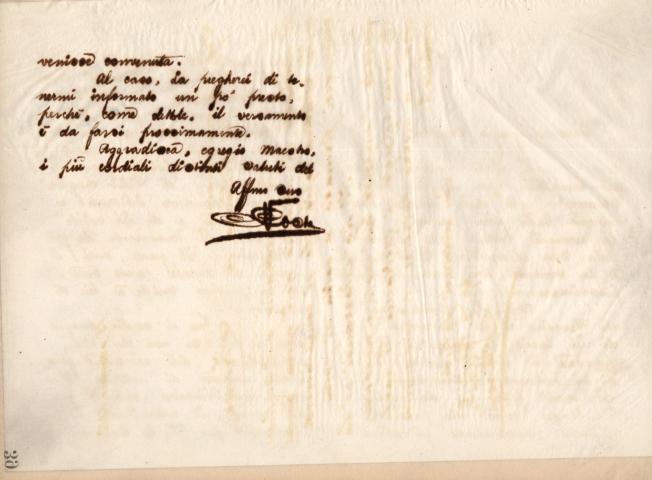 venisse comunicata.
Al caso, La pregherei di te-
nermi informato un po' presto,
perchè, come dettole, il versamento
è da farsi prossimamente.
Aggradisca, egregio Maestro,
i più cordiali distinti saluti del
Affmo suo
30